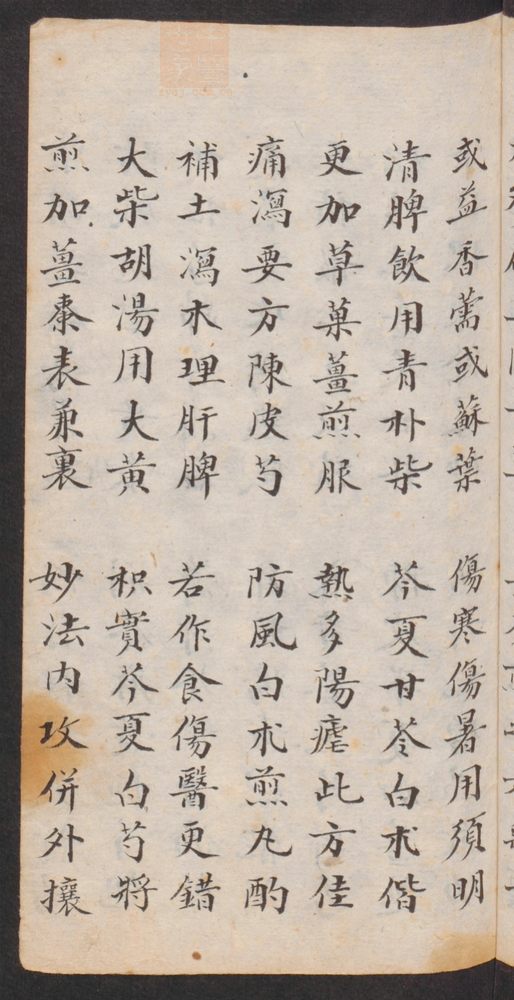 或益香薷或蘇葉 傷寒傷暑用須明
清脾飲用青朴柴 芩夏甘苓白朮偕
更加草菓薑煎服 熱多陽瘧此方佳
痛瀉要方陳皮芍 防風白朮煎丸酌
補土瀉木理肝脾 若作食傷醫更錯
大柴胡湯用大黃 枳實芩夏白芍將
煎加薑棗表兼裏 妙法內攻併外攘